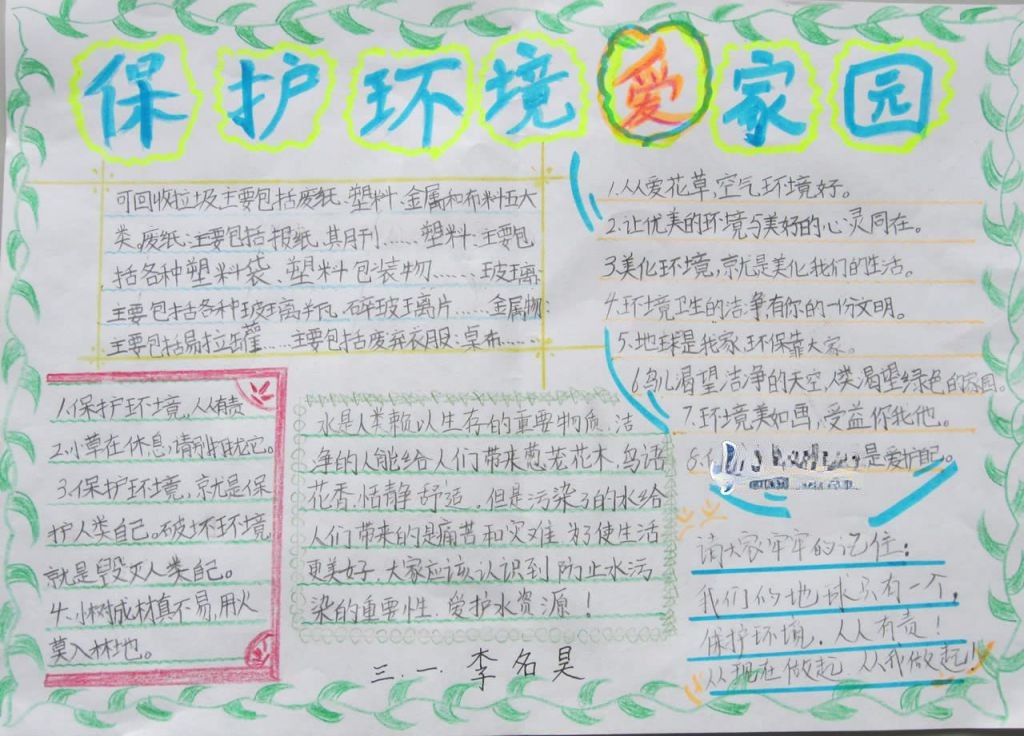 保护环境爱家园
可回收垃圾主要包括废纸、塑料、金属和布料五大
类。废纸:主要包括报纸、其月刊……塑料:主要包
括各种塑料袋、塑料包装物……玻璃:
主要包括各种玻璃瓶、碎玻璃片……金属物:
主要包括易拉罐……主要包括废弃衣服、桌布……
1.从爱花草,空气环境好。
2.让优美的环境与美好的心灵同在。
3.美化环境,就是美化我们的生活。
4.环境卫生的洁净,有你的一份文明。
5.地球是我家,环保靠大家。
6.鸟儿渴望洁净的天空,人类渴望绿色的家园。
7.环境美如画,受益你我他。
8.
是爱护自己。
1.保护环境,人人有责
2.小草在休息,请别打扰它。
3.保护环境,就是保
护人类自己。破坏环境
就是毁灭人类自己。
4.小树成材真不易,用火
莫入林地。
水是人类赖以生存的重要物质,洁
净的人能给人们带来葱茏花木,鸟语
花香,恬静舒适。但是污染了的水给
人们带来的是痛苦和灾难,为了使生活
更美好,大家应该认识到防止水污
染的重要性,爱护水资源!
请大家牢牢的记住:
我们的地球只有一个,
保护环境,人人有责!
从现在做起 从我做起!
三.一 李名昊